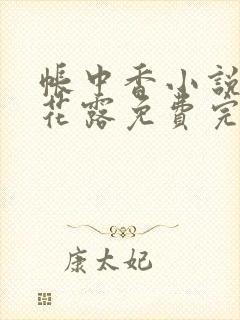 帳中香小說
花露免費完
康太妃